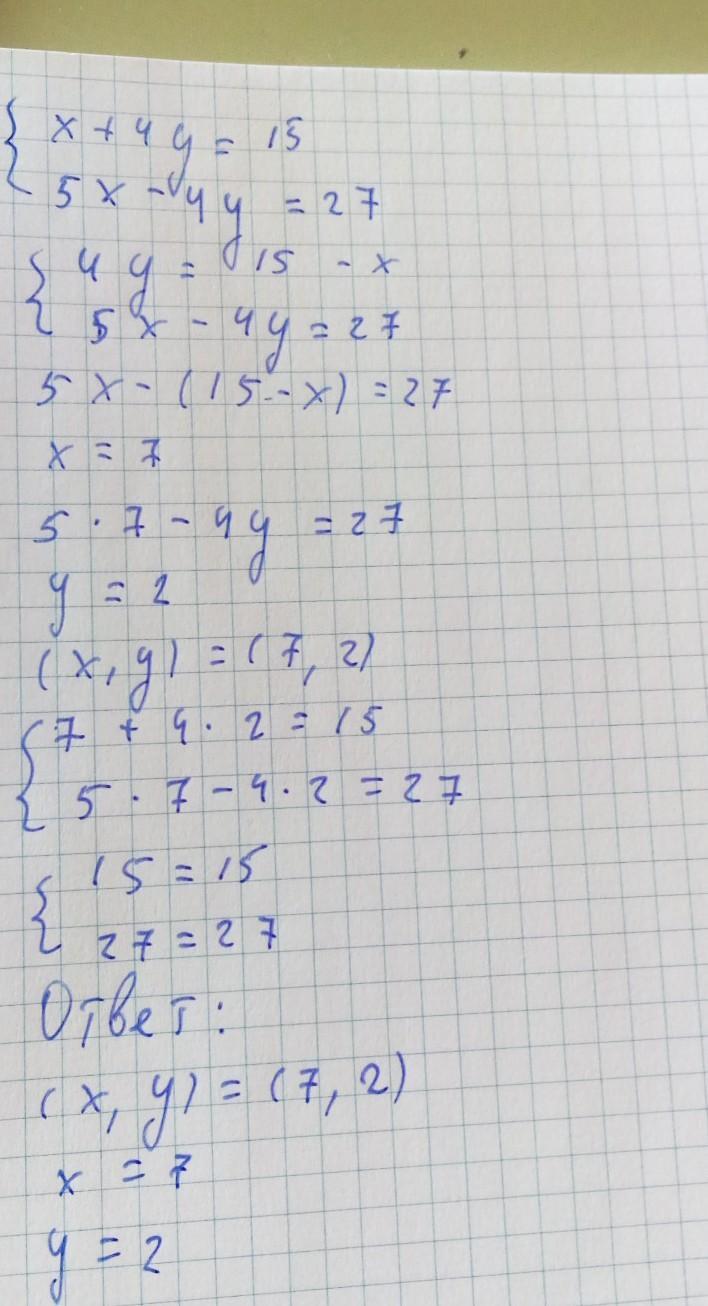 { x + 4y = 15
5x - 4y = 27
{ 4y = 15 - x
5x - 4y = 27
5x - (15 - x) = 27
x = 7
5 · 7 - 4y = 27
y = 2
(x, y) = (7, 2)
{ 7 + 4 · 2 = 15
5 · 7 - 4 · 2 = 27
{ 15 = 15
27 = 27
Ответ:
(x, y) = (7, 2)
x = 7
y = 2